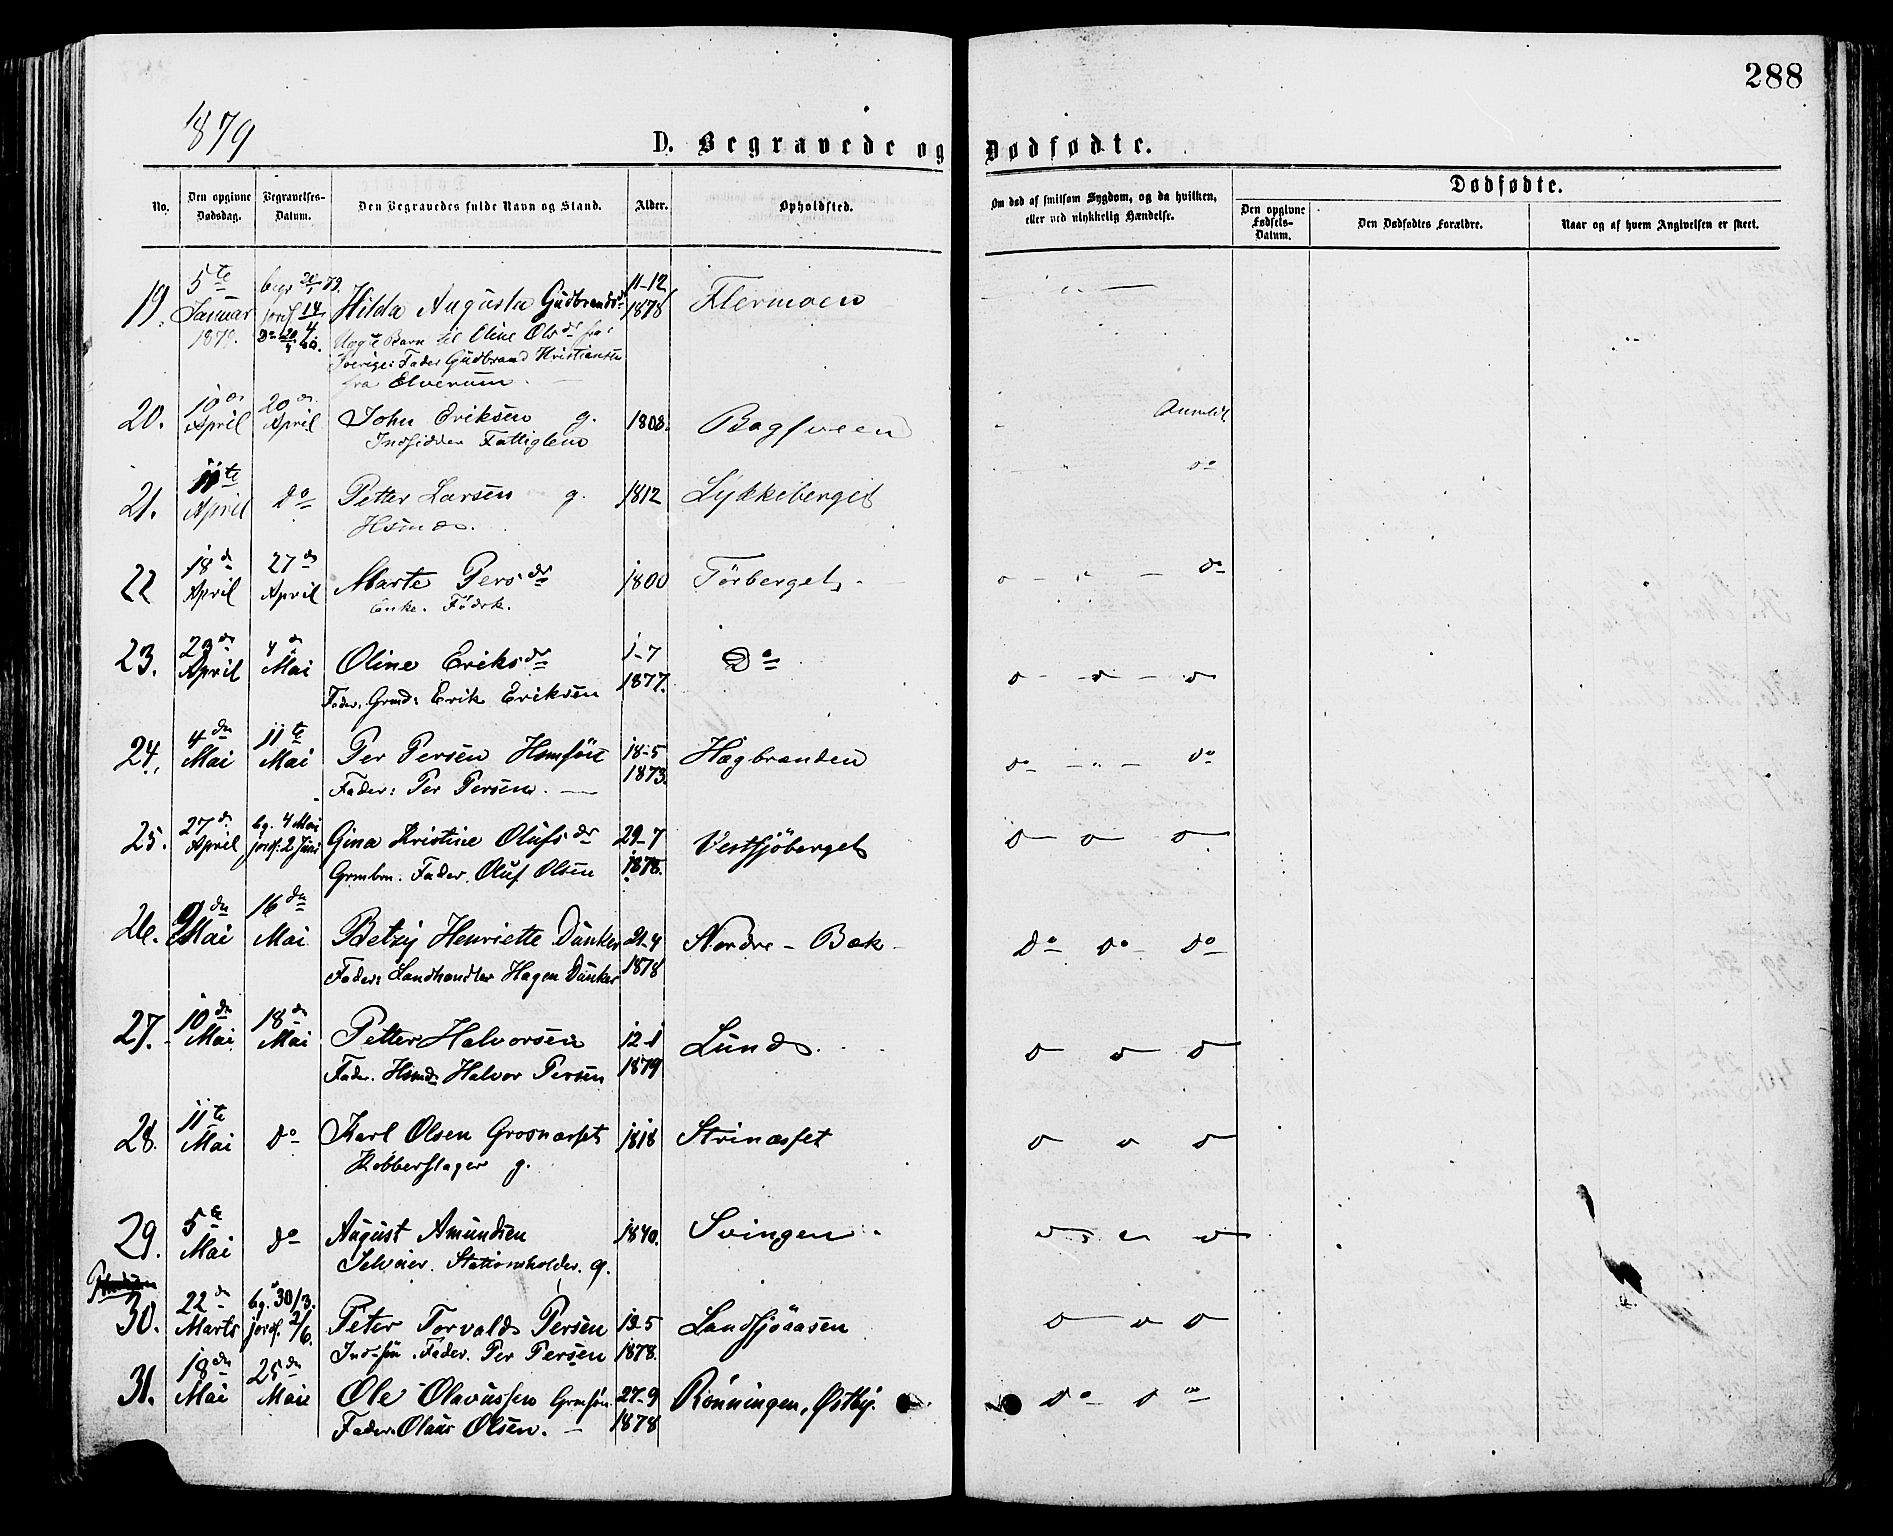 288
1879
D. Begravede og Dødfødte.
No.
Den opgivne Dødsdag.
Begravelses-Datum.
Den Begravedes fulde Navn og Stand.
Alder.
Opholdsted.
Om død af smitsom Sygdom, og da hvilken, eller ved ulykkelig Hændelse.
Dødfødte.
Den opgivne Fødsels-Datum.
Den Dødfødtes Forældre.
Naar og af hvem Angivelsen er skeet.
19. 5te Januar 1879. begr 20/1 79. jordf 14/4 Hilda Augusta Gudbrandsdr 11-12 1878 Flermoen
Uægte Barn til Oline Olsdr fra
Sverige: Fader Gudbrand Kristiansen
fra Elverum.
20. 10de April 20de April John Eriksen g. 1808. Bagsveen Anmeldt
Indsidder Fattiglem
21. 11te April do Petter Larsen g. 1812 Lykkeberget do
Hsmd.
22 18de April 27de April Marte Persdr 1800 Törberget do
Enke. Födrk.
23. 29de April 4de Mai Oline Eriksdr 1-7 1877. Do
Fader. Grmd: Erik Eriksen
24. 4den Mai 11te Mai Per Persen Hsmsön 18-5 1873. Hagbranden do do
Fader: Per Persen.
25. 27de April bg. 4 Mai jordf. 2 Juni Gina Kristine Olufsdr 29-7 1878. Vestsjöberget
Grmbrn. Fader. Oluf Olsen
26. 9den Mai 16den Mai Betzy Henriette Dunker 21-4 1878 Nordre-Bæk Do do do
Fader: Landhandler Hagen Dunker
27. 10den Mai 18de Mai Petter Halvorsen 12-1 1879 Lund
Fader. Hsmd. Halvor Persen
28. 11te Mai do Karl Olsen Grosnæsset 1818 Strinæsset
Kobberslager g.
29. 5te Mai do August Amundsen 1840. Svingen
Selveier. Stationsholder. g.
30. 22de Marts bg. 30/3. jordf. 2/6. Peter Torvald Persen 12-5 1878. Landsjöaasen
Inds:sön. Fader. Per Persen
31. 18den Mai 25de Mai Ole Olavussen Grmsön. 27-9 1878 Rønningen, Østby. do
Fader. Olaus Olsen.